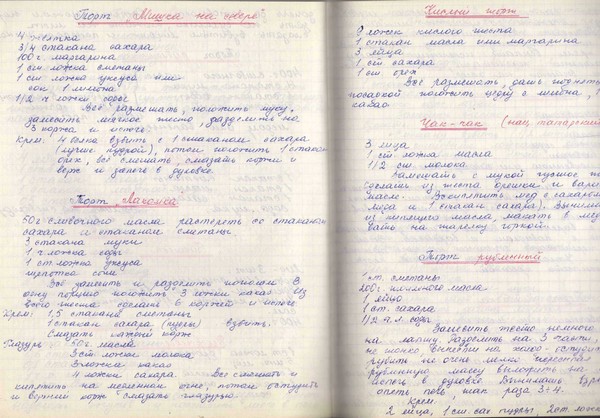 Торт „Мишка на севере"
4 желтка
3/4 стакана сахара
100г. маргарина
1 ст. ложка сметаны
1 ст. ложка уксуса или
сок 1 лимона
1/2 ч ложки соды
Всё размешать, положить муку,
замесить мягкое тесто, разделить на
3 коржа и испечь.
Крем: 4 белка взбить с 1 стаканом сахара
(лучше пудрой), потом положить 1 стакан
орех, всё смешать, смазать коржи и
верх и запечь в духовке.
Торт „Лакомка"
50г сливочного масла растереть со стаканом
сахара и стаканом сметаны.
3 стакана муки
1 ч ложка соды
1 ст. ложка уксуса
щепотка соли
Всё замесить и разделить пополам. В
одну порцию положить 3 ложки какао из
всего теста сделать 6 коржей и испечь
Крем: 1,5 стакана сметаны
1 стакан сахара (пудры) взбить.
Смазать каждый корж
Глазурь: 50г. масла
3 ст. ложки молока
3 ложки какао
4 ложки сахара. Всё смешать и
кипятить на медленном огне, потом остудить
и верхний корж смазать глазурью.
Кислый торт
9 ложек кислого теста
1 стакан масла или маргарина
3 яйца
1 ст. сахара
1 ст. орех
Всё размешать, дать
посадкой положить цедру с лимона, 1
какао
Чак-чак (нац. татарский
3 яйца
1 ст ложка масла
1/2 ст. молока
Замешать с мукой густое
сделать из теста орешки и
масле. Вскипятить мёд с сахаром
мёда и 1 стакан сахара).
из кипящего масла, макать в
на тарелку горкой.
Торт рубленный
1 ст. сметаны
200г. топлёного масла
1 яйцо
1 ст. сахара
1/2 ч.л. соды
Замесить тесто немного
на лапшу. Разделить на 3 части,
не очень мелко
рубленную массу выложить на
испечь в духовке. Вынимать
опять печь, так раза 3-4.
Крем:
2 яйца, 1 ст. сах пудры, 2 ст. ложки